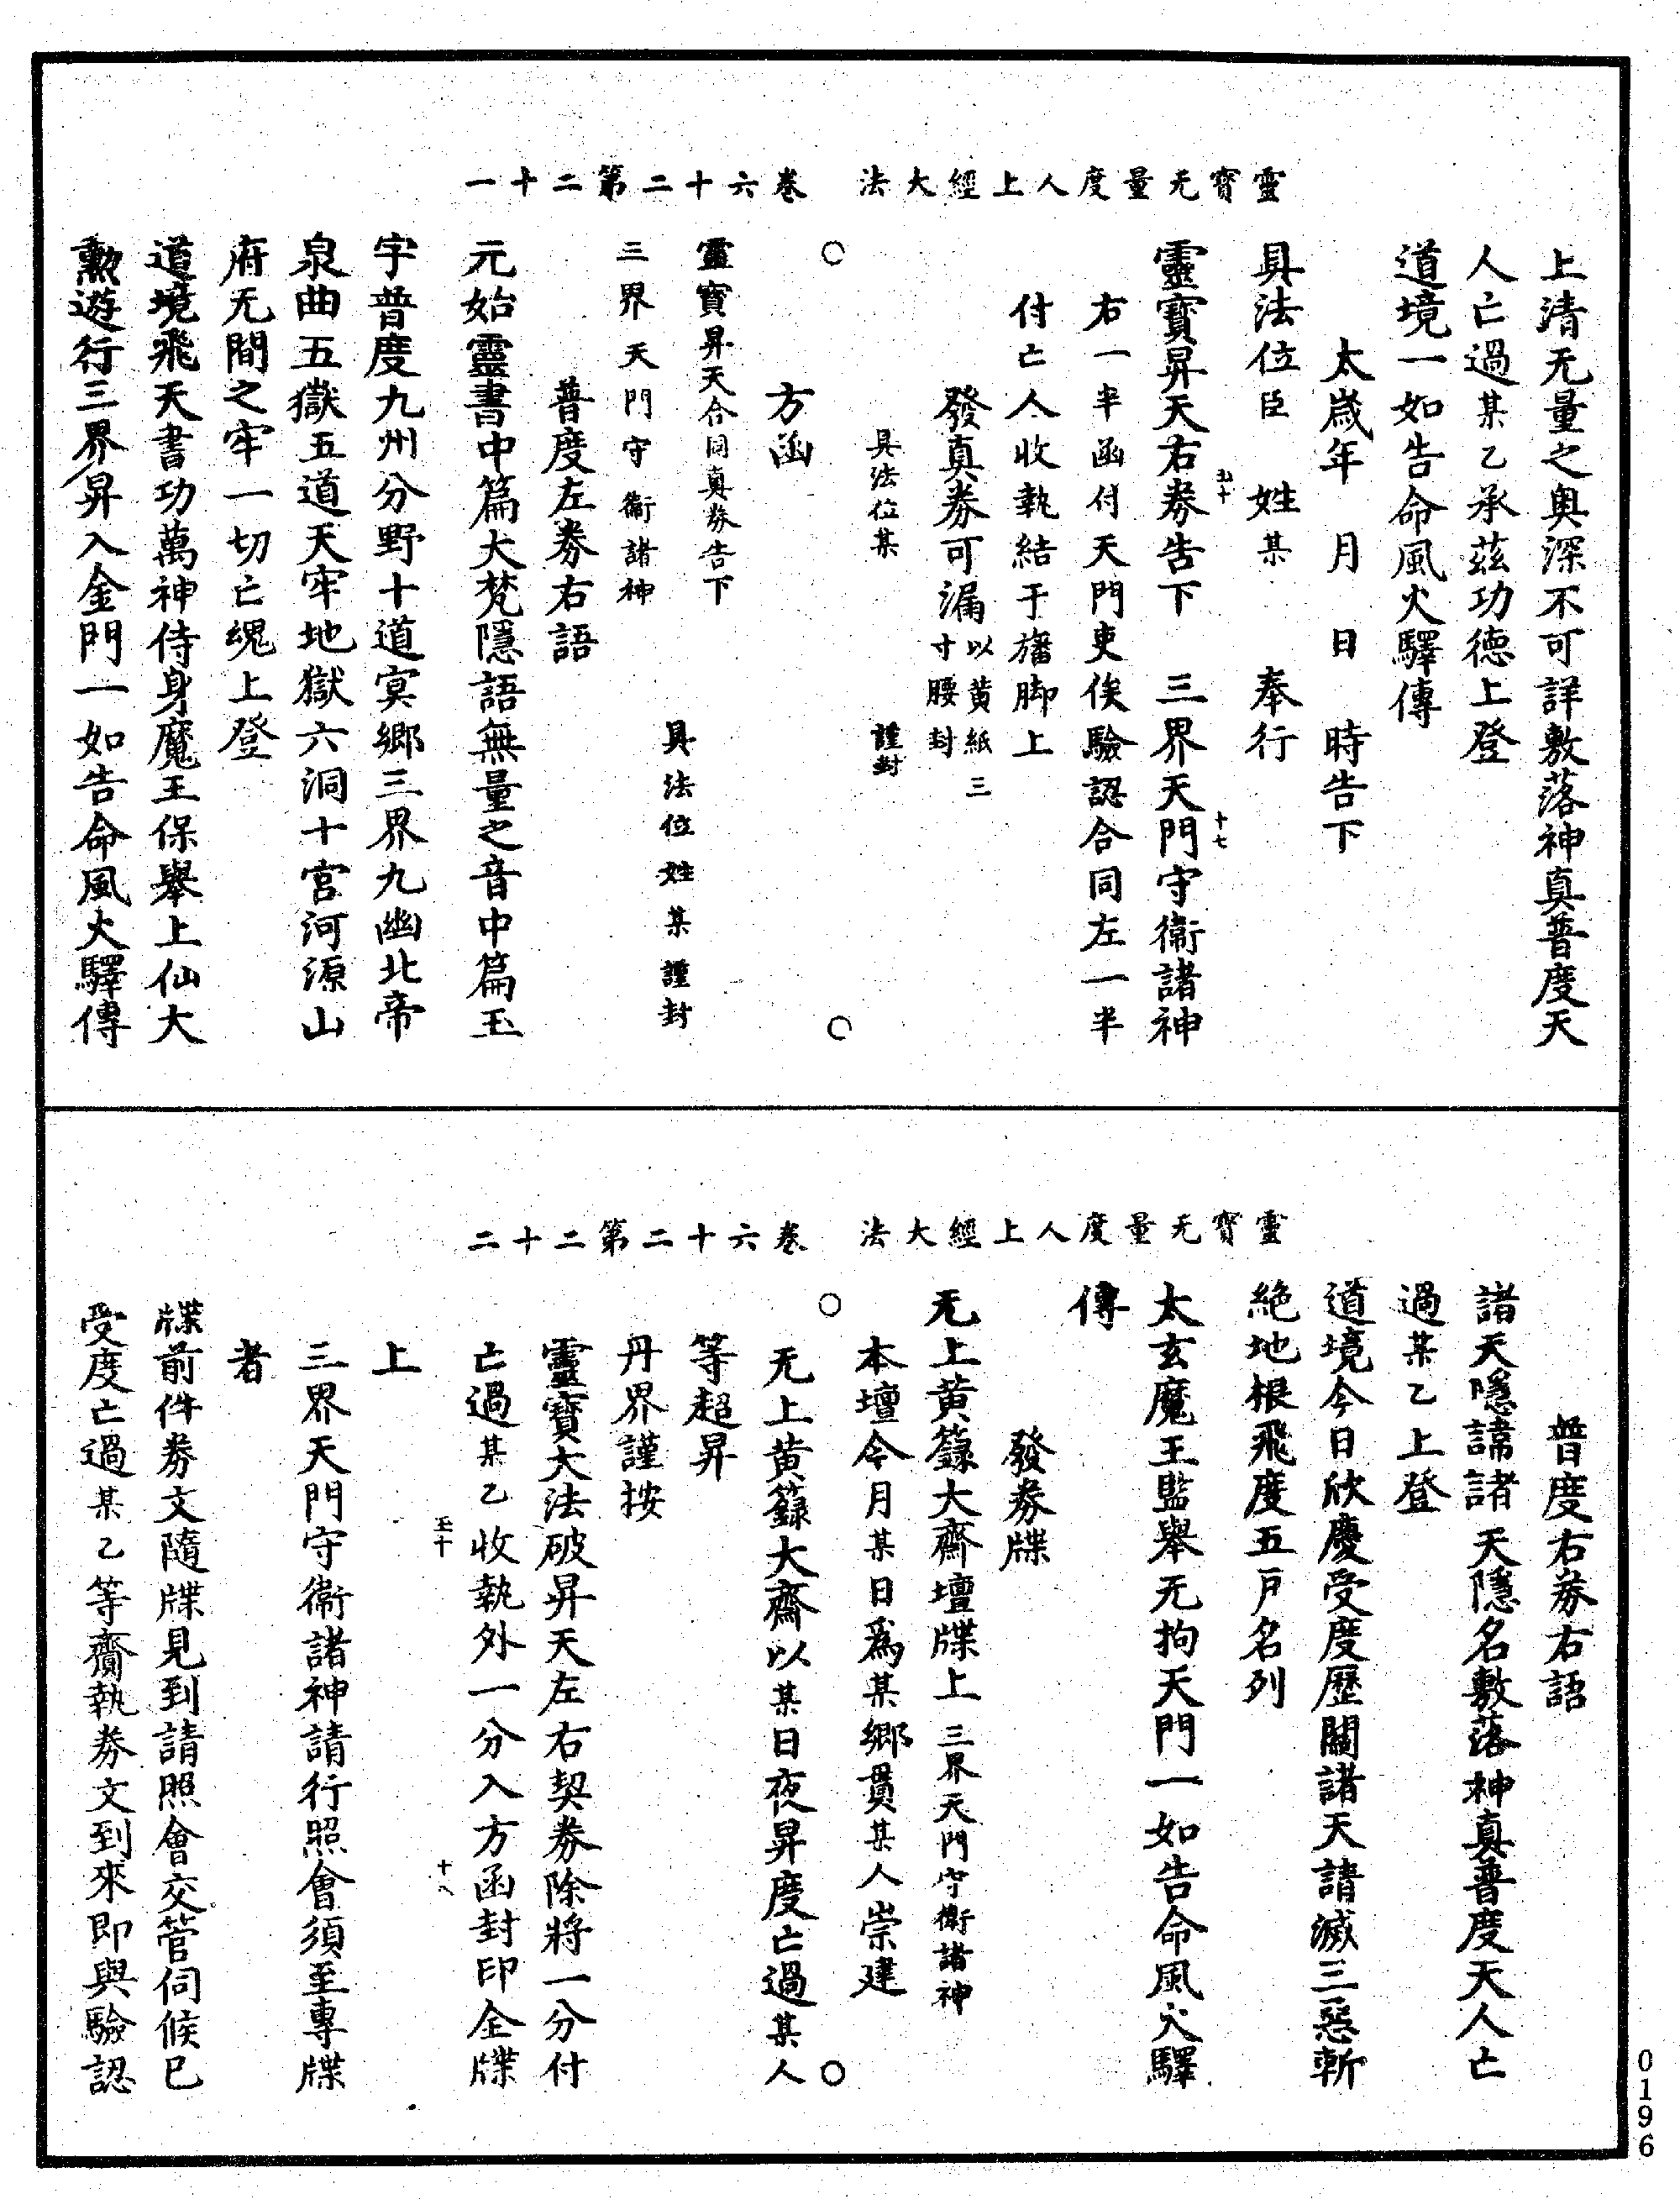 靈寶无量度人上經大法　卷六十二第二十一
上清无量之奥深不可詳敷落神真普度天
人亡過某乙承茲功德上登
道境一如告命風火驛傳
太歲年　月　日　時告下
具法位臣　姓某　　奉行
靈寶昇天右券告下　三界天門守衛諸神
右一半函付天門吏俟驗認合同左一半
付亡人收執結于旛脚上
發真券可漏以黄紙三
寸腰封
具法位某　　　謹封
方函
靈寶昇天合同真券告下
三界天門守衛諸神
具法位姓某謹封
普度左券右語
元始靈書中篇大梵隱語無量之音中篇玉
宇普度九州分野十道冥鄉三界九幽北帝
泉曲五嶽五道天牢地獄六洞十宮河源山
府无間之牢一切亡䰟上登
道境飛天書功萬神侍身魔王保舉上仙大
勲遊行三界昇入金門一如告命風火驛傳
靈寶无量度人上經大法　卷六十二第二十二
普度右券右語
諸天隱諱諸天隱名敷落神真普度天人亡
過某乙上登
道境今日欣慶受度歷關諸天請滅三惡斬
絶地根飛度五戸名列
太玄魔王監舉无拘天門一如告命風火驛
傳
發券牒
无上黄籙大齋壇牒上三界天門守衛諸神
本壇今月某日爲某鄉貫某人崇建
无上黄籙大齋以某日夜昇度亡過某人
等超昇
丹界謹按
靈寶大法破昇天左右契券除將一分付
亡過某乙收執外一分入方函封印全牒
上
三界天門守衛諸神請行照會須至專牒
者
牒前件券文隨牒見到請照會交管伺候已
受度亡過某乙等齎執券文到來即與驗認
0196